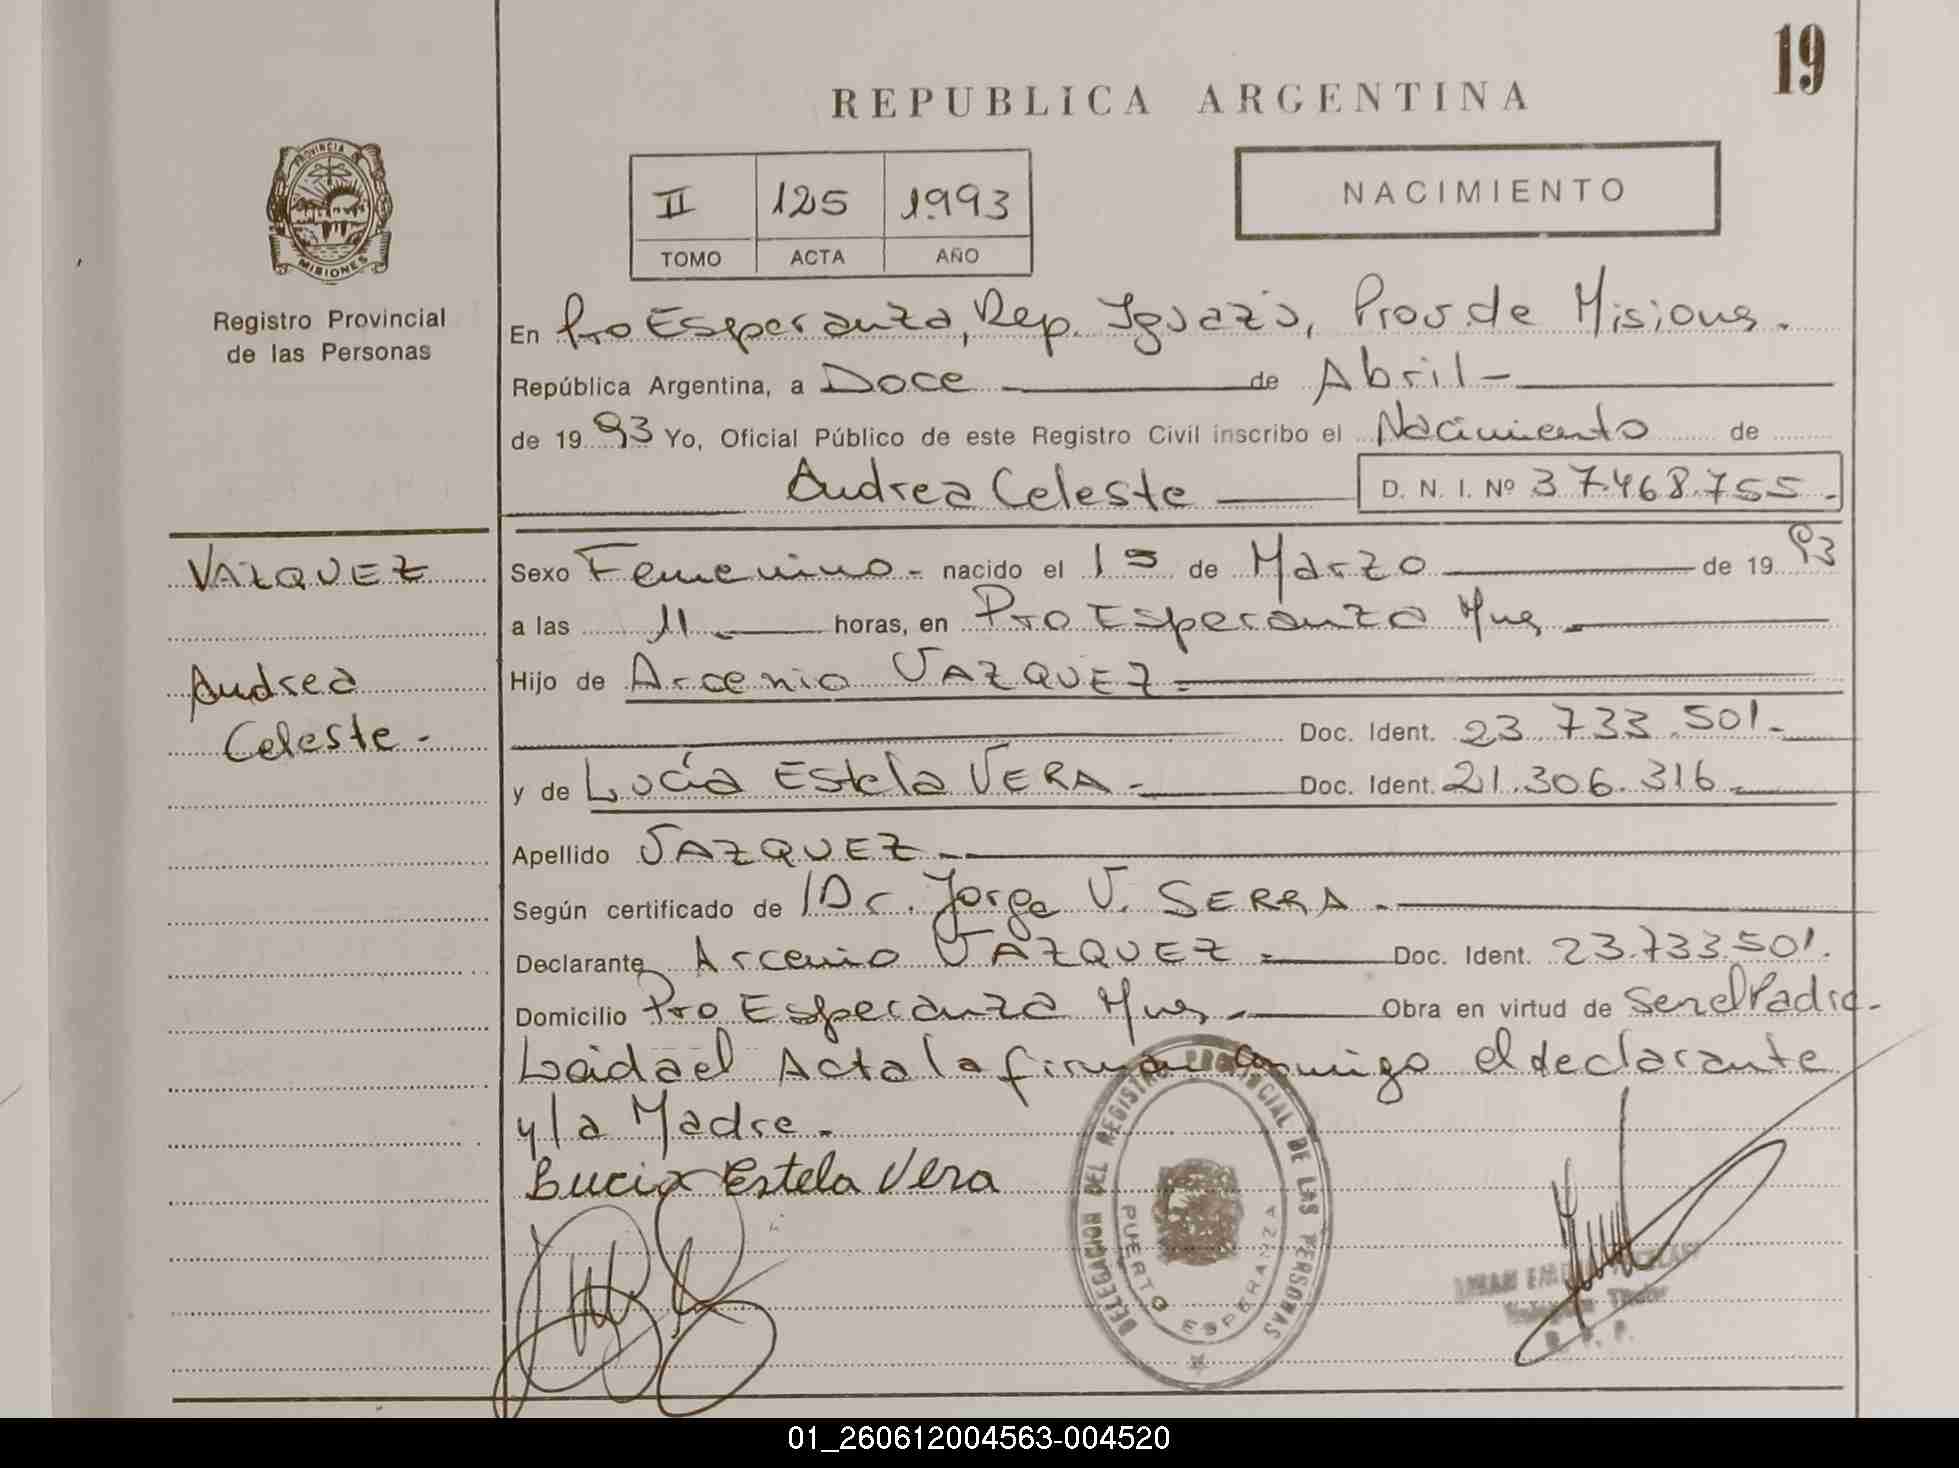 19
REPUBLICA ARGENTINA
PROVINCIA DE
MISIONES
Registro Provincial
de las Personas
II 125 1993
TOMO ACTA AÑO
NACIMIENTO
En Pto Esperanza, Dep. Iguazú, Prov. de Misiones.
República Argentina, a Doce de Abril -
de 1993 Yo, Oficial Público de este Registro Civil inscribo el Nacimiento de
Andrea Celeste D. N. I. Nº 37.468.755.-
VAZQUEZ
Andrea
Celeste -
Sexo Femenino - nacido el 15 de Marzo de 1993
a las 11 horas, en Pto Esperanza Mnes
Hijo de Arcenio VAZQUEZ
Doc. Ident. 23.733.501.-
y de Lucía Estela VERA - Doc. Ident. 21.306.316.-
Apellido VAZQUEZ -
Según certificado de Dr. Jorge V. SERRA -
Declarante Arcenio VAZQUEZ Doc. Ident. 23.733.501.
Domicilio Pto Esperanza Mnes Obra en virtud de Ser el Padre -
Leida el Acta la firman conmigo el declarante
y la Madre -
Lucia Estela Vera
DELEGACION DEL REGISTRO PROVINCIAL DE LAS PERSONAS
PUERTO ESPERANZA
01_260612004563-004520